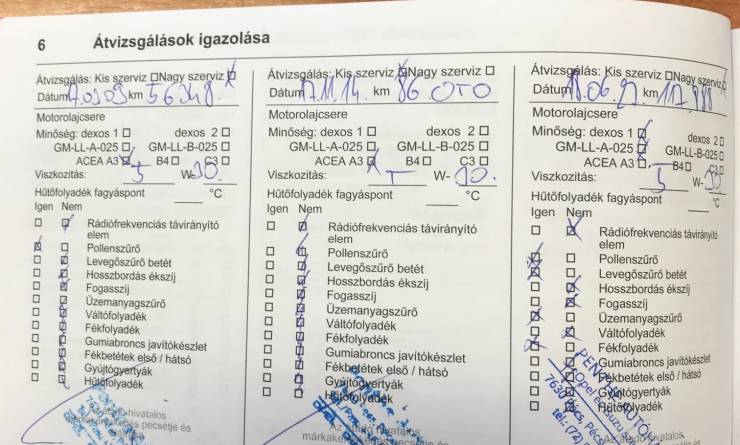 6 Átvizsgálások igazolása
Átvizsgálás: Kis szerviz Nagy szerviz
Dátum km 56348
Motorolajcsere
Minőség: dexos 1 dexos 2
GM-LL-A-025 GM-LL-B-025
ACEA A3 B4 C3
Viszkozitás: 5 W-30
Hűtőfolyadék fagyáspont °C
Igen Nem
Rádiófrekvenciás távirányító
elem
Pollenszűrő
Levegőszűrő betét
Hosszbordás ékszíj
Fogasszíj
Üzemanyagszűrő
Váltófolyadék
Fékfolyadék
Gumiabroncs javítókészlet
Fékbetétek első / hátsó
Gyújtógyertyák
Hűtőfolyadék
hivatalos
pecsétje és
Átvizsgálás: Kis szerviz Nagy szerviz
Dátum 17.11.14. km 86 070
Motorolajcsere
Minőség: dexos 1 dexos 2
GM-LL-A-025 GM-LL-B-025
ACEA A3 B4 C3
Viszkozitás: W-30.
Hűtőfolyadék fagyáspont °C
Igen Nem
Rádiófrekvenciás távirányító
elem
Pollenszűrő
Levegőszűrő betét
Hosszbordás ékszíj
Fogasszíj
Üzemanyagszűrő
Váltófolyadék
Fékfolyadék
Gumiabroncs javítókészlet
Fékbetétek első / hátsó
Gyújtógyertyák
Hűtőfolyadék
Átvizsgálás: Kis szerviz Nagy szerviz
Dátum 18.06.27 km
Motorolajcsere
Minőség: dexos 1 dexos 2
GM-LL-A-025 GM-LL-B-025
ACEA A3 B4 C3
Viszkozitás: 5 W-30
Hűtőfolyadék fagyáspont °C
Igen Nem
Rádiófrekvenciás távirányító
elem
Pollenszűrő
Levegőszűrő betét
Hosszbordás ékszíj
Fogasszíj
Üzemanyagszűrő
Váltófolyadék
Fékfolyadék
Gumiabroncs javítókészlet
Fékbetétek első / hátsó
Gyújtógyertyák
Hűtőfolyadék